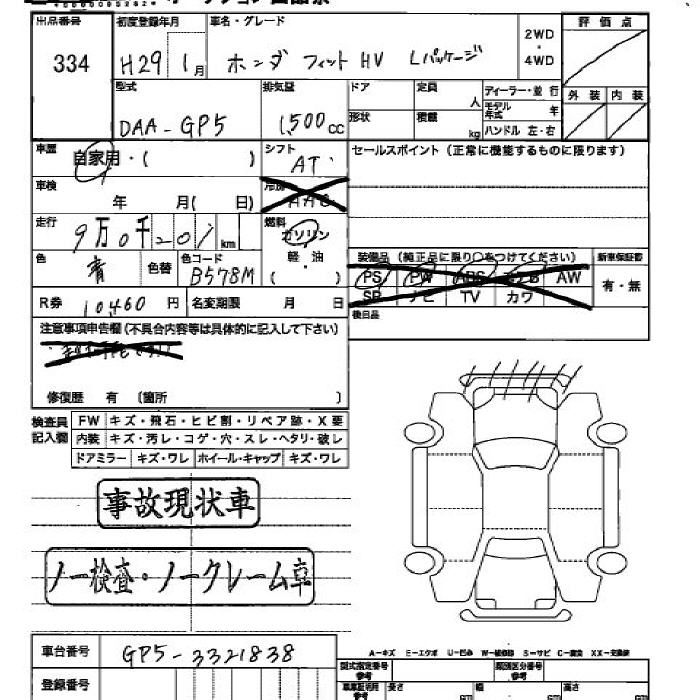 出品番号 初度登録年月 車名・グレード 2WD・4WD 評価点
334 H29 1月 ホンダ フィット HV Lパッケージ
型式 排気量 ドア 定員 人 ディーラー・並行 外装 内装
DAA-GP5 1,500cc 形状 積載 kg モデル年式 年
ハンドル 左・右
車歴 自家用・( ) シフト AT セールスポイント(正常に機能するものに限ります)
車検 年 月(日) 冷房 AAC
走行 9万0千201km 燃料 ガソリン
軽・油
色 青 色替 色コード B578M ( )
装備品(純正品に限り○をつけてください) 新車保証書
PS PW ABS エアB AW 有・無
SR ナビ TV カワ
R券 10,460円 名変期限 月 日 後日品
注意事項申告欄(不具合内容等は具体的に記入して下さい)
修復歴 有 〔箇所 〕
検査員記入欄 FW キズ・飛石・ヒビ割・リペア跡・X要
内装 キズ・汚レ・コゲ・穴・スレ・ヘタリ・破レ
ドアミラー キズ・ワレ ホイール・キャップ キズ・ワレ
事故現状車
ノー検査・ノークレーム車
A-キズ E-エクボ U-凹み W-補修跡 S-サビ C-腐食 XX-交換後
車台番号 GP5-3321838 型式指定番号 参考 類別区分番号 参考
登録番号 車庫証明用 参考 長さ cm 幅 cm 高さ cm